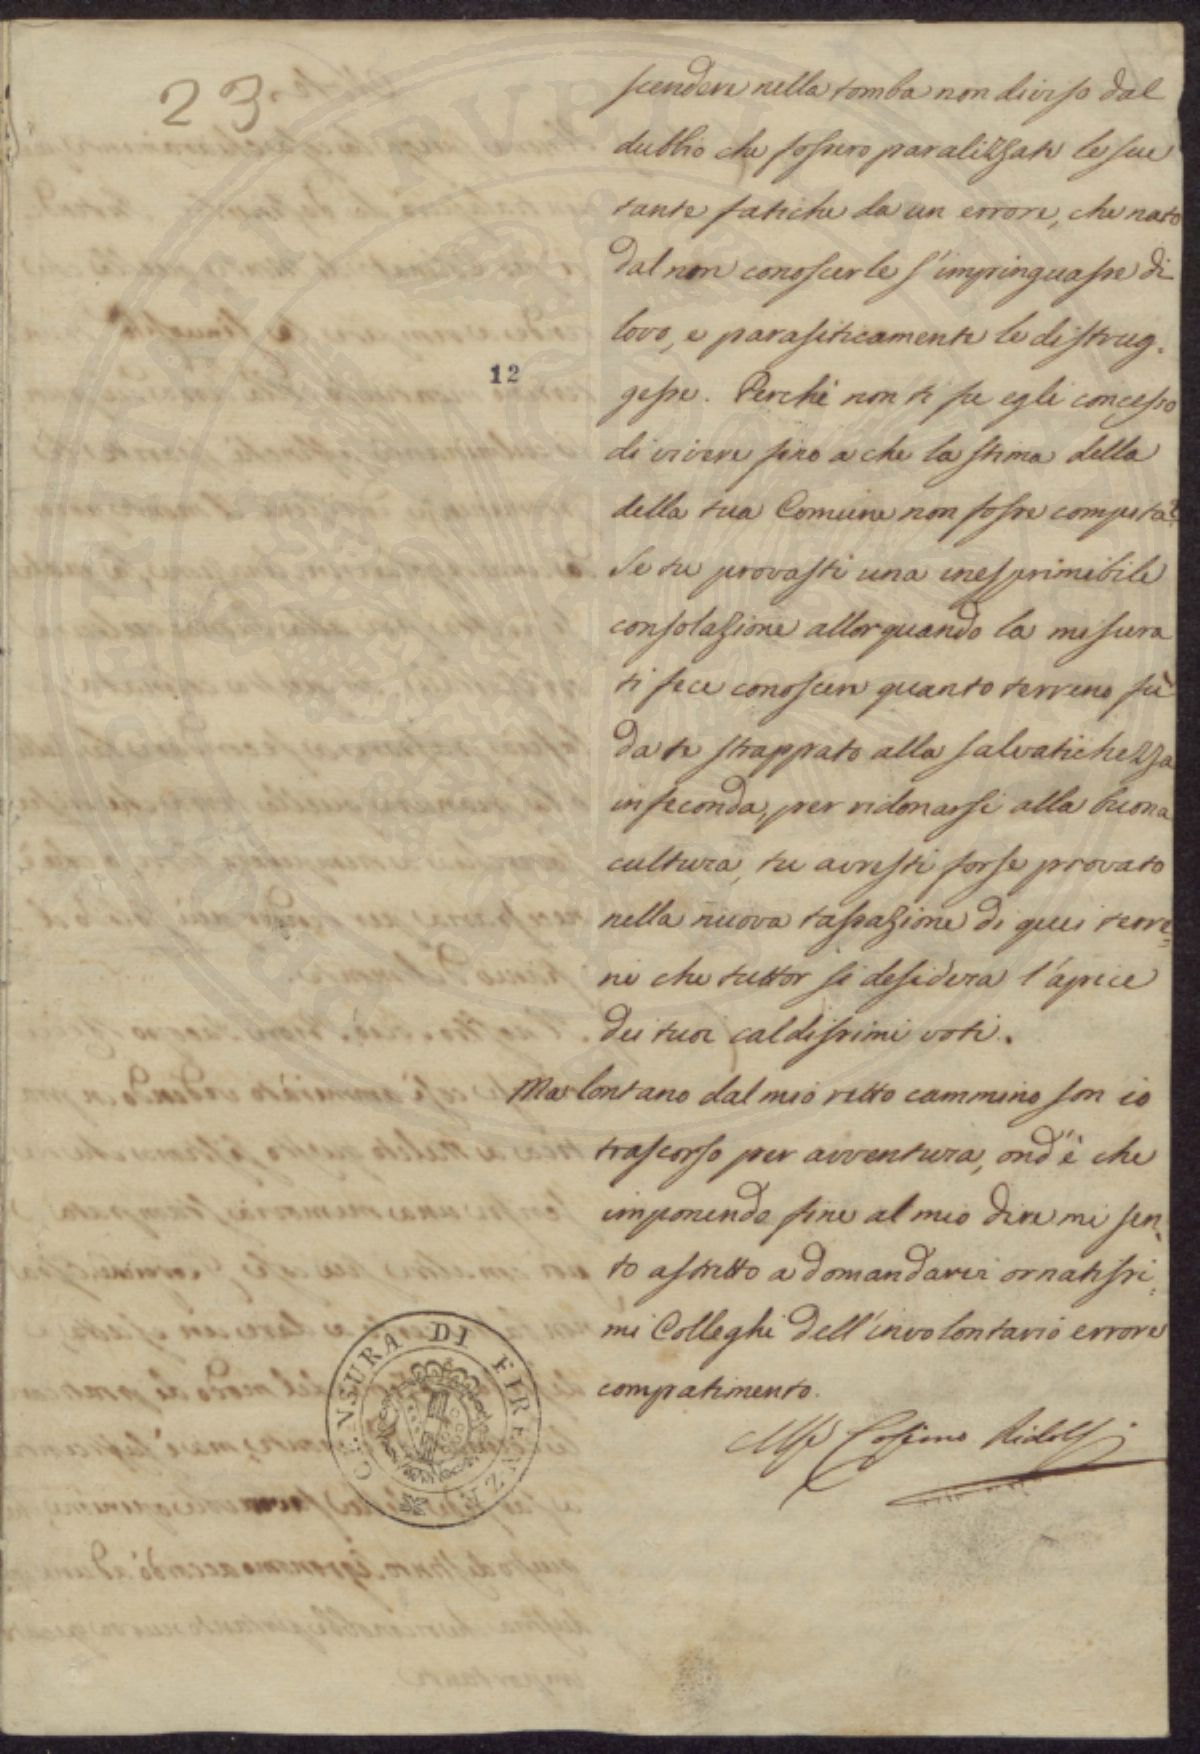 23
12
scendere nella tomba non diviso dal
dubbio che fossero paralizzate le sue
tante fatiche da un errore, che nato
dal non conoscerle s'impinguasse di
loro, e parasiticamente le distrug-
gesse. Perchè non ti fu egli concesso
di vivere fino a che la stima della
della tua Comune non fosse compita?
Se tu provasti una inesprimibile
consolazione allorquando la misura
ti fece conoscere quanto terreno fù
da te strappato alla salvatichezza
infeconda, per ridonarsi alla buona
cultura, tu avresti forse provato
nella nuova tassazione di quei terre-
ni che tuttor si desidera l'apice
dei tuoi caldissimi voti.
Ma lontano dal mio retto cammino son io
trascorso per avventura, ond'è che
imponendo fine al mio dire mi sen-
to astretto a domandarvi ornatissi-
mi Colleghi dell'involontario errore
compatimento.
Cosimo Ridolfi
CENSURA DI FIRENZE